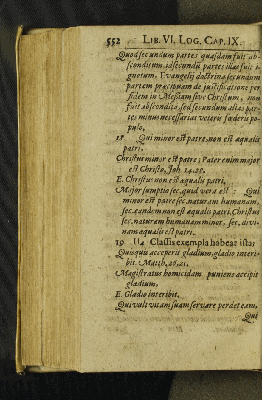 552 LIB. VI. LOG. CAP. IX.
Quod secundum partes quasdam fuit ab-
sconditum, id secundum partes illas fuit i-
gnotum. Evangelij doctrina secundum
partem præcipuam de justificatione per
fidem in Messiam sive Christum, non
fuit abscondita sed secundum alias par-
tes minus necessarias veteris fœderis po-
pulo.
Qui minor est patre, non est æqualis
patri.
Christus minor est patre; Pater enim major
est Christo, Joh. 14. 28.
E. Christus non est æqualis patri.
Major sumptio sec. quid vera est: Qui
minor est patre sec. naturam humanam,
sec. eandem non est æqualis patri. Christus
sec. naturam humanam minor, sec. divi-
nam æqualis est patri.
19 Classis exempla habeat ista:
Quisquis acceperit gladium, gladio interi-
bit. Matth. 26.
Magistratus homicidam puniens accipit
gladium,
E. Gladio interibit.
Qui vult vitam suam servare perdet eam.
Qui